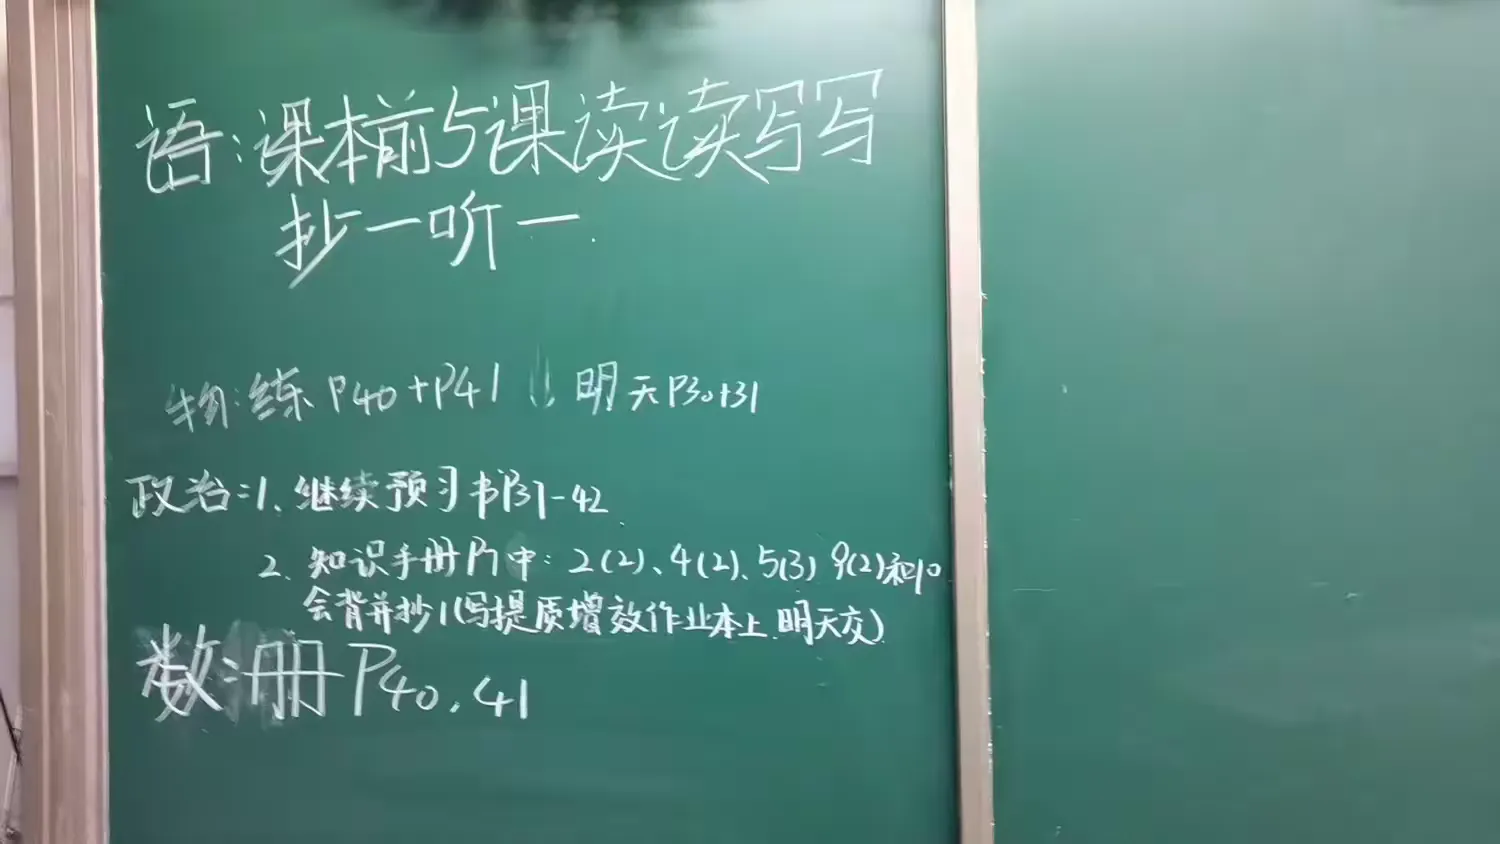 语:课本前5课读读写写
抄一听一.
物:练P40+P41 明天P30+31
政治:1、继续预习书P37-42
2、知识手册P7中:2(2)、4(2)、5(3) 9(2)和10
会背并抄1(写提质增效作业本上,明天交)
数:册P40、41